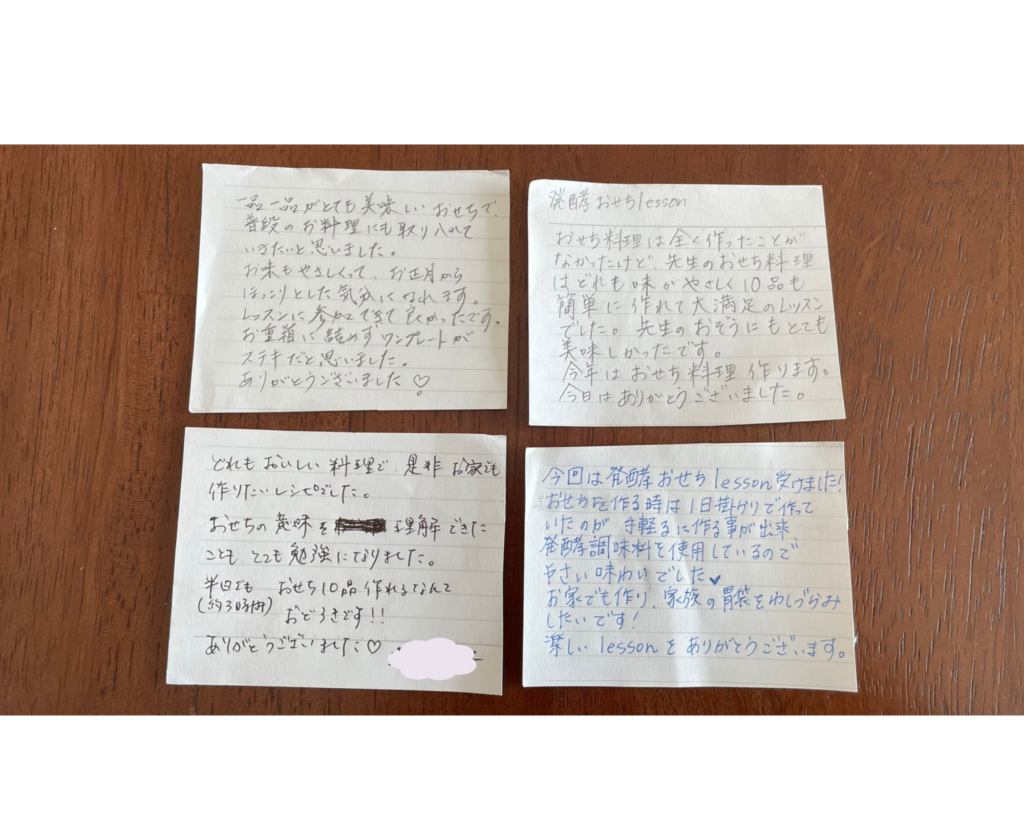 一品一品がとても美味しいおせちで、
普段のお料理にも取り入れて
いきたいと思いました。
お味もやさしくって、お正月から
ほっこりとした気分になれます。
レッスンに参加できて良かったです。
お重箱に詰めずワンプレートが
ステキだと思いました。
ありがとうございました♡
発酵おせちlesson
おせち料理は全く作ったことが
なかったけど、先生のおせち料理
はどれも味がやさしく10品も
簡単に作れて大満足のレッスン
でした。先生のおぞうにもとても
美味しかったです。
今年はおせち料理作ります。
今日はありがとうございました。
どれもおいしい料理で、是非お家でも
作りたいレシピでした。
おせちの意味を理解できた
こともとても勉強になりました。
半日でも おせち10品作れるなんて
(約3時間) おどろきです!!
ありがとうございました♡
今回は発酵おせちlesson受けました!
おせちを作る時は1日掛けりで作って
いたのが 手軽るに作る事が出来、
発酵調味料を使用しているので、
やさい味わいでした♥
お家でも作り、家族の胃袋をわしづらみ
したいです!
楽しいlessonをありがとうございます。